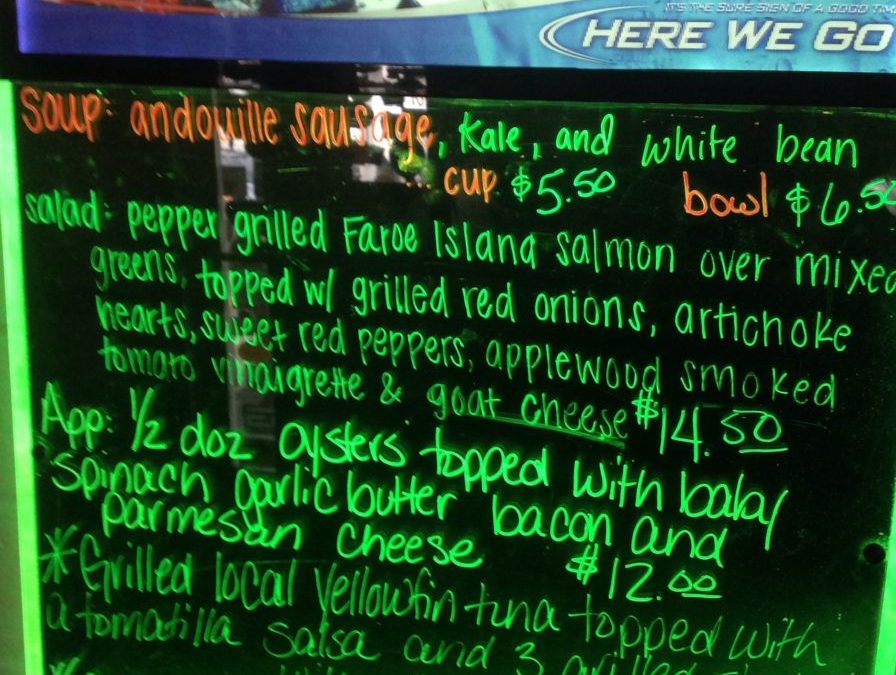 IT'S THE SURE SIGN OF A GOOD TIM
HERE WE GO
soup: andouille sausage, kale, and white bean
cup $5.50 bowl $6.50
salad: pepper grilled Faroe Island salmon over mixed
greens, topped w/ grilled red onions, artichoke
hearts, sweet red peppers, applewood smoked
tomato vinaigrette & goat cheese $14.50
App: 1/2 doz oysters topped with baby
spinach garlic butter bacon and
parmesan cheese $12.00
*Grilled local yellowfin tuna topped with
a tomatilla salsa and 3 grilled